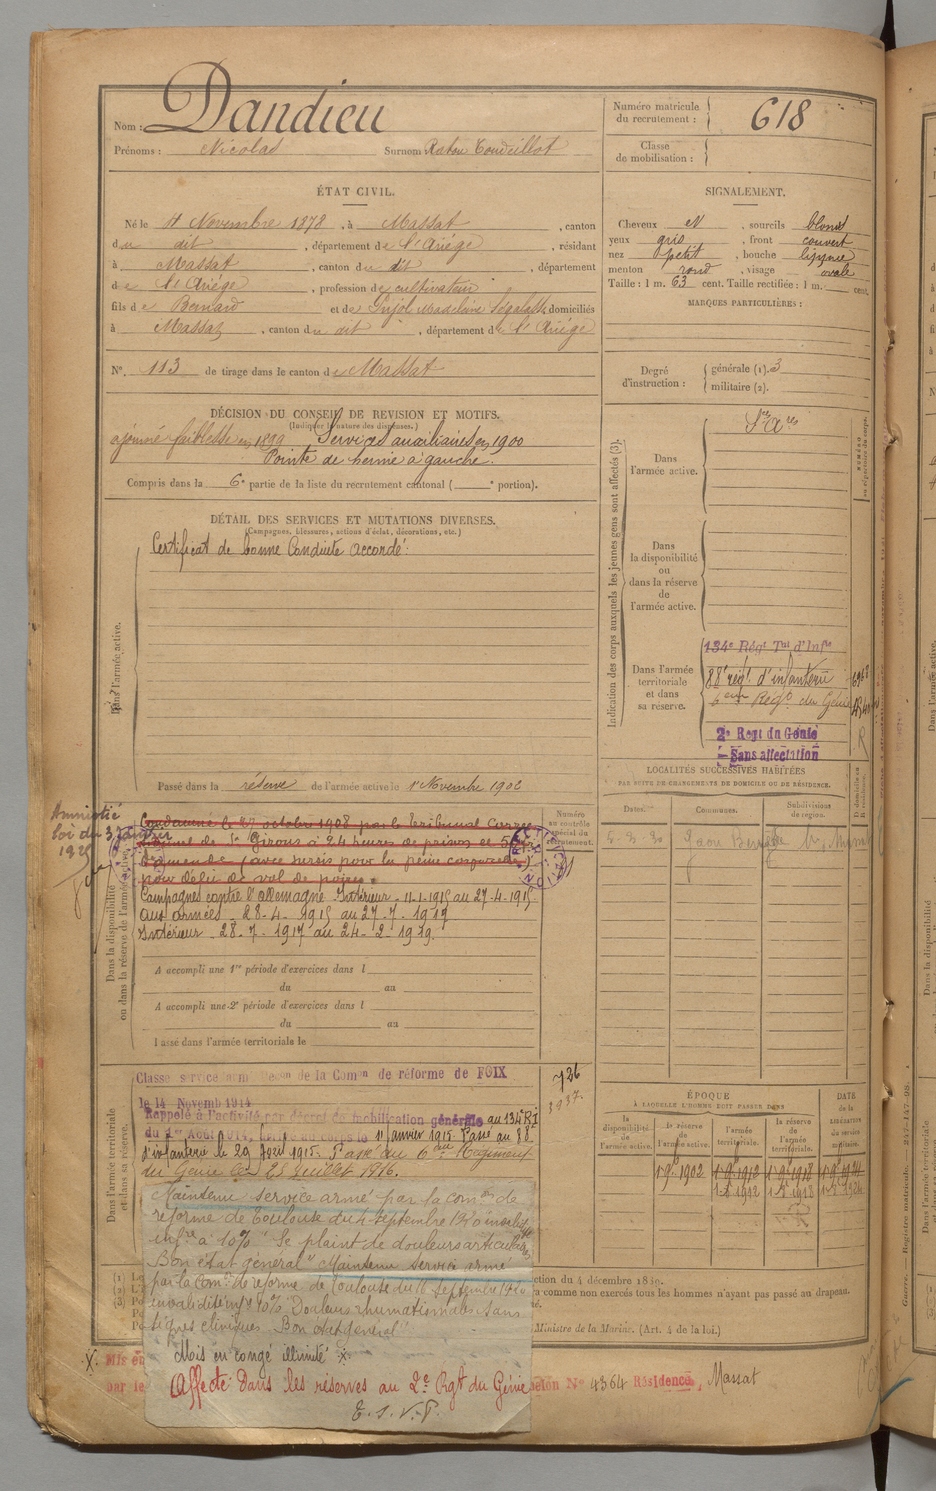 Nom : Dandieu
Prénoms : Nicolas Surnom
Numéro matricule du recrutement : 618
Classe de mobilisation :
ÉTAT CIVIL.
Né le 11 Novembre 1878, à Massat, canton
du dit, département de l'Ariége, résidant
à Massat, canton du dit, département
de l'Ariége, profession de cultivateur
fils de Bernard et de Pujol Madeleine Ségalasse, domiciliés
à Massat, canton du dit, département de l'Ariége
N° 113 de tirage dans le canton de Massat
SIGNALEMENT.
Cheveux et, sourcils blond
yeux gris, front couvert
nez petit, bouche lippue
menton rond, visage ovale
Taille : 1 m. 63 cent. Taille rectifiée : 1 m. cent.
MARQUES PARTICULIÈRES :
Degré d'instruction : générale (1). 3
militaire (2).
DÉCISION DU CONSEIL DE REVISION ET MOTIFS.
(Indiquer la nature des dispenses.)
ajourné faiblesse en 1899 Services auxiliaires en 1900
Pointe de hernie à gauche.
Compris dans la 6e partie de la liste du recrutement cantonal ( e portion).
DÉTAIL DES SERVICES ET MUTATIONS DIVERSES.
(Campagnes, blessures, actions d'éclat, décorations, etc.)
Dans l'armée active.
Certificat de bonne Conduite accordé.
Passé dans la réserve de l'armée active le 1er Novembre 1902
Indication des corps auxquels les jeunes gens sont affectés (3).
Dans l'armée active.
Dans la disponibilité ou dans la réserve de l'armée active.
Dans l'armée territoriale et dans sa réserve.
134e Régt Tal d'Infie
88e régt. d'infanterie
6eme Régt du Génie
2e Regt du Génie
Sans affectation
LOCALITÉS SUCCESSIVES HABITÉES
PAR SUITE DE CHANGEMENTS DE DOMICILE OU DE RÉSIDENCE.
Dates. Communes. Subdivisions de region.
Amnistié
loi du 3 Janvier
1925
Dans la disponibilité ou dans la réserve de l'armée active.
Condamné le 27 octobre 1908 par le Tribunal Correc
tionnel de St Girons à 24 heures de prison et 5f
d'amende (avec sursis pour la peine corporelle)
pour délit de vol de poires.
Campagnes contre l'Allemagne Intérieur - 11-1-1915 au 27-4-1915
aux armées - 28-4-1915 au 27-7-1917
Intérieur - 28-7-1917 au 24-2-1919.
Numéro au contrôle spécial du recrutement.
A accompli une 1re période d'exercices dans l
du au
A accompli une 2e période d'exercices dans l
du au
Passé dans l'armée territoriale le
Dans l'armée territoriale et dans sa réserve.
Classé service armé Décon de la Comon de réforme de FOIX
le 14 Novemb 1914
726
Rappelé à l'activité par décret de mobilisation générale au 134e RI
du 1er Août 1914, arrivé au corps le 11 Janvier 1915. Passé au 88e
d'infanterie le 29 Avril 1915. Passé au 6eme Régiment
du Génie le 25 Juillet 1916.
ÉPOQUE
À LAQUELLE L'HOMME DOIT PASSER DANS
la disponibilité de l'armée active.
la réserve de l'armée active.
l'armée territoriale.
la réserve de l'armée territoriale.
DATE de la LIBÉRATION du service militaire.
Maintenu service armé par la comon de
réforme de Toulouse du 4 septembre 1920 invalidité
infre à 10% "Se plaint de douleurs articulaires
Bon état général" Maintenu service armé
par la comon de réforme de Toulouse du
invalidité infre 10% Douleurs rhumatismales sans
signes cliniques. Bon état général"
Mis en congé illimité X.
Affecté dans les réserves au 2e Rgt du Génie
T. S. V. P.
ction du 4 décembre 1889.
comme non exercés tous les hommes n'ayant pas passé au drapeau.
Ministre de la Marine. (Art. 4 de la loi.)
X. Mis en
par le
N° 4364 Résidence, Massat